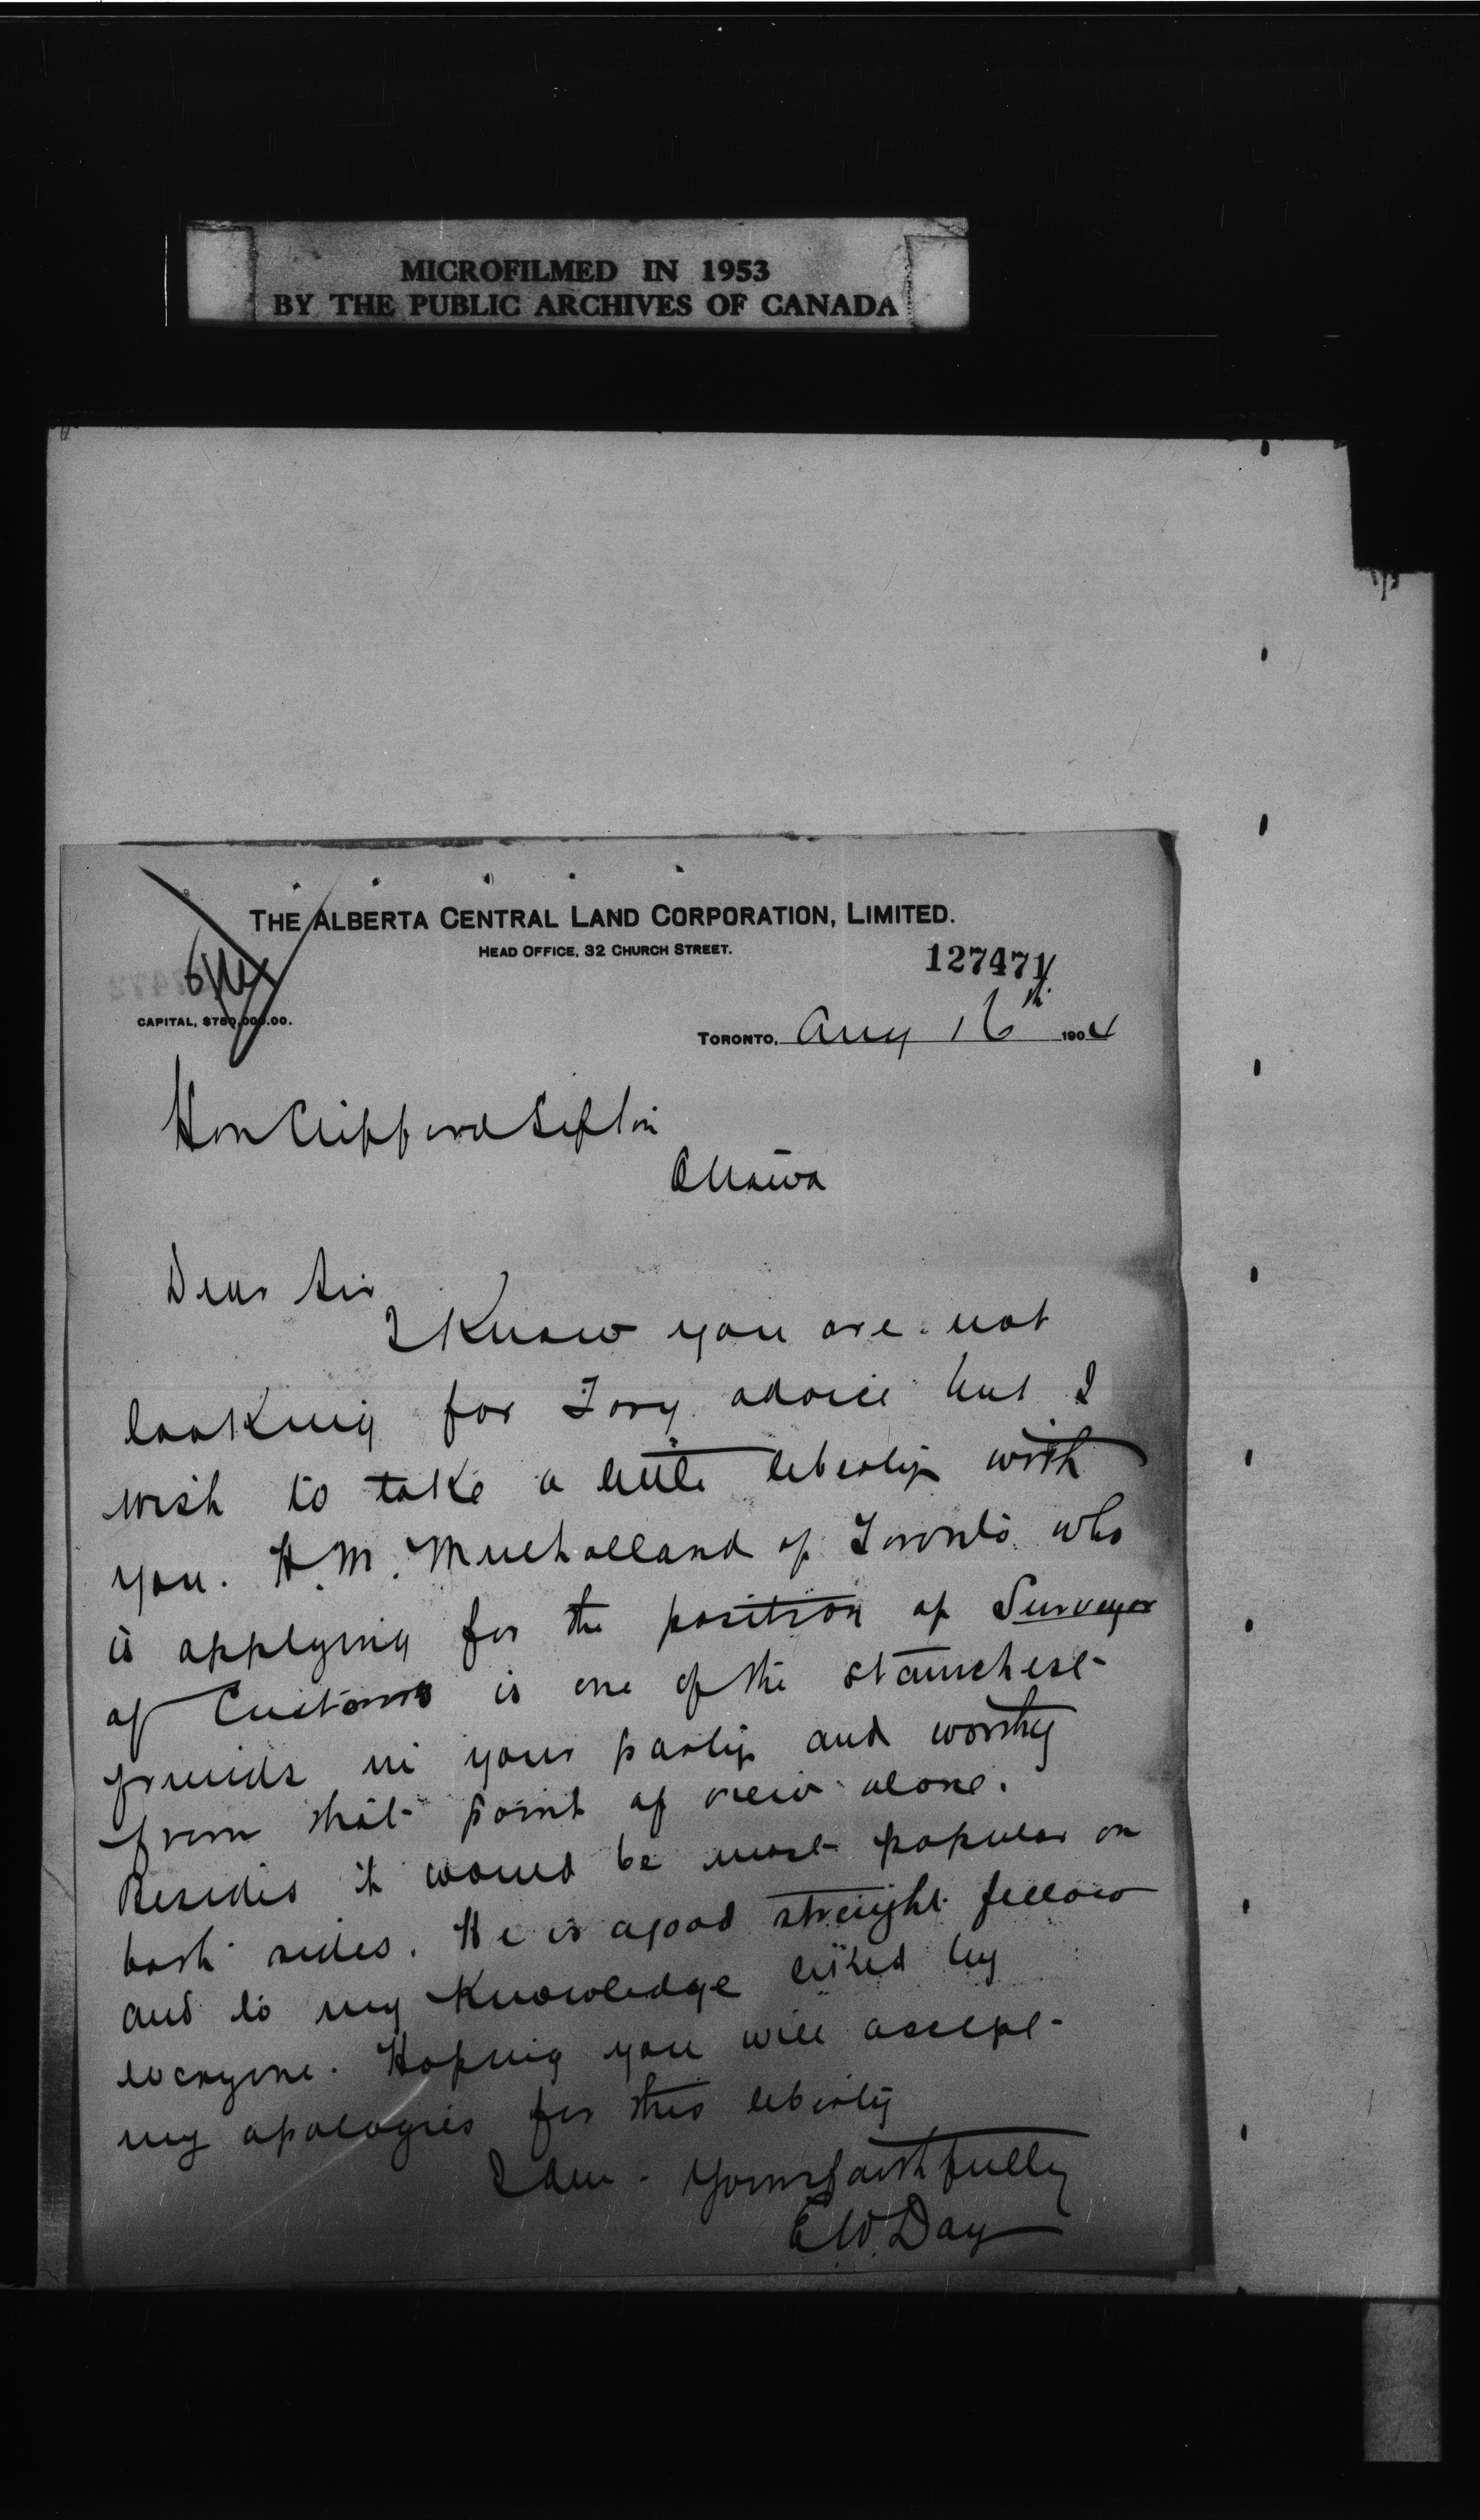 MICROFILMED IN 1953
BY THE PUBLIC ARCHIVES OF CANADA
THE ALBERTA CENTRAL LAND CORPORATION, LIMITED.
HEAD OFFICE, 32 CHURCH STREET.
127471
CAPITAL, $750,000.00.
TORONTO, Aug 16th 1904
Hon Clifford Sifton
Ottawa
Dear Sir
I Know you are not
looking for Tory advice but I
wish to take a little liberty with
you. H. M. Mulholland of Toronto who
is applying for the position of Surveyor
of Customs is one of the staunchest
friends in your party and worthy
from that point of view alone.
Besides it would be most popular on
both sides. He is a good straight fellow
and to my Knowledge liked by
everyone. Hoping you will accept
my apologies for this liberty
I am - Yours faithfully
E. W. Day